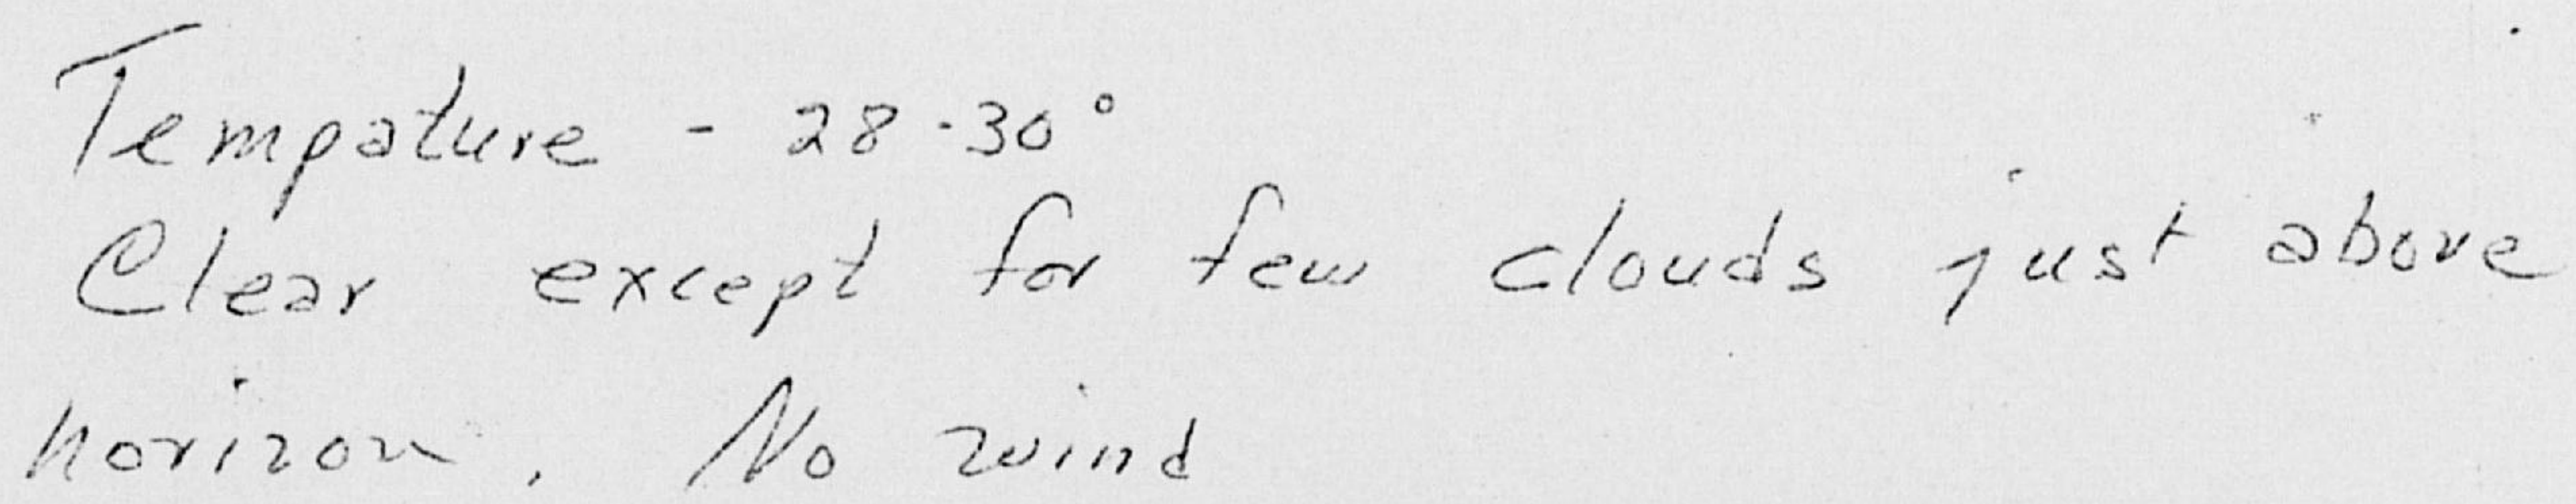 Tempature - 28-30°
Clear except for few clouds just above
horizon. No wind